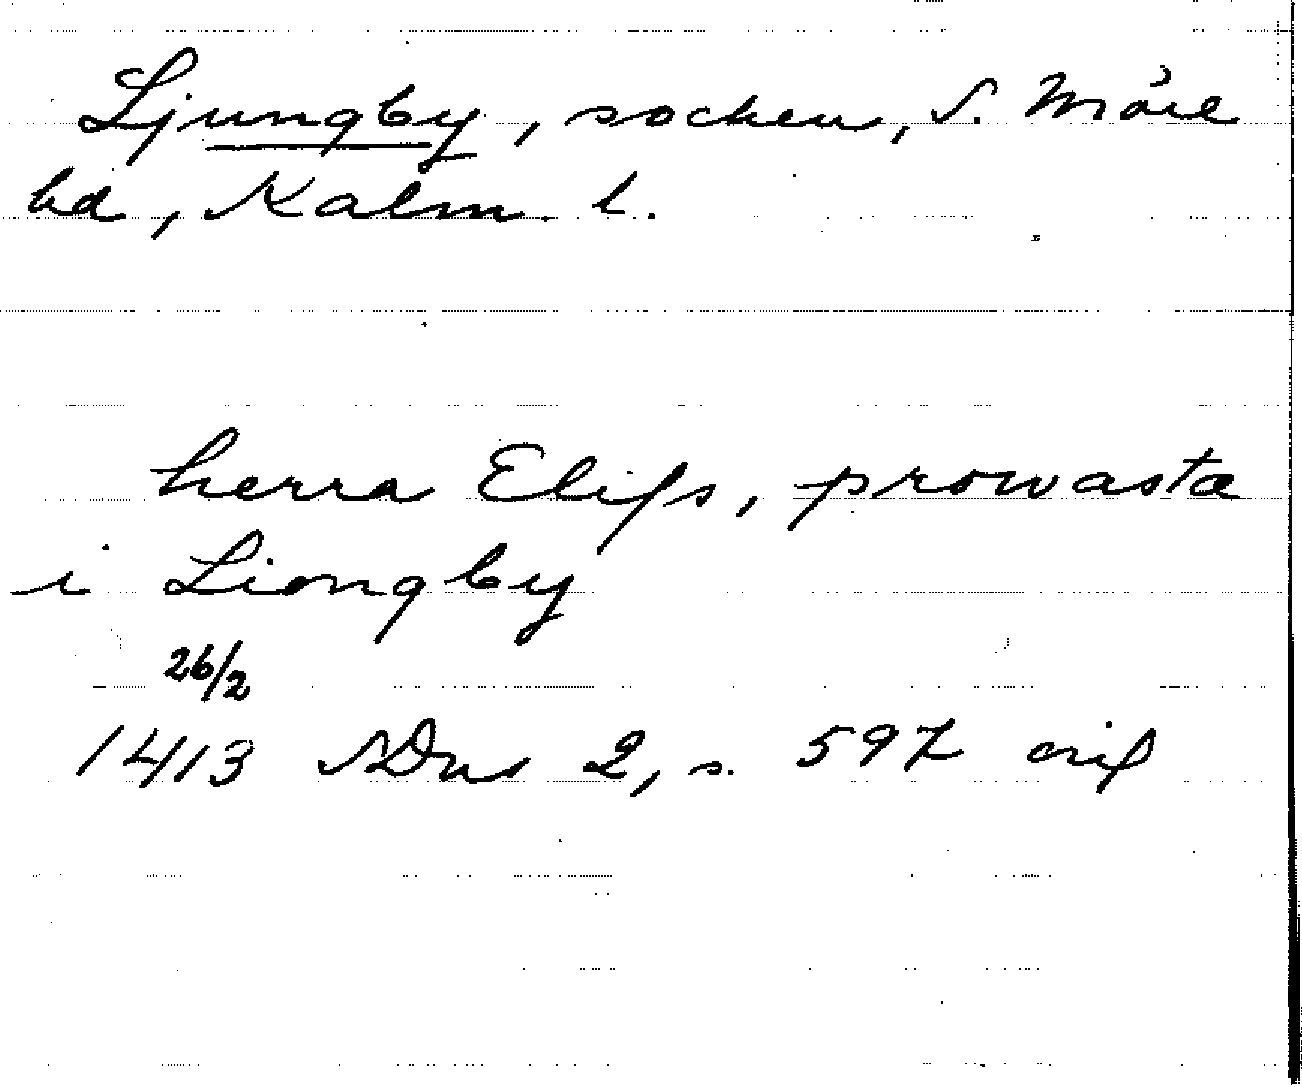 Ljungby, socken, S. Möre
hd, Kalm. l.
herra Elifs, prowasta
i Liongby
26/2
1413 SDns 2, s. 597 orig